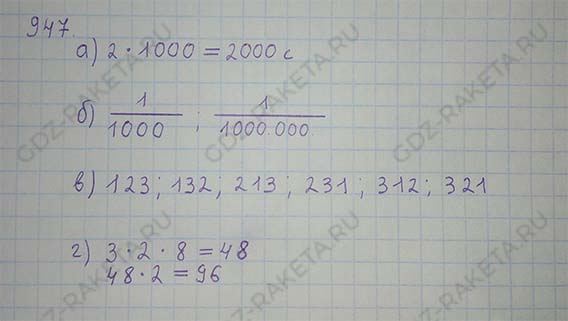 947.
а) 2 · 1000 = 2000 с
б) 1/1000 ; 1/1000.000.
в) 123; 132; 213; 231; 312; 321
г) 3 · 2 · 8 = 48
48 · 2 = 96
GDZ-RAKETA.RU
GDZ-RAKETA.RU
GDZ-RAKETA.RU
GDZ-RAKETA.RU
GDZ-RAKETA.RU
GDZ-RAKETA.RU